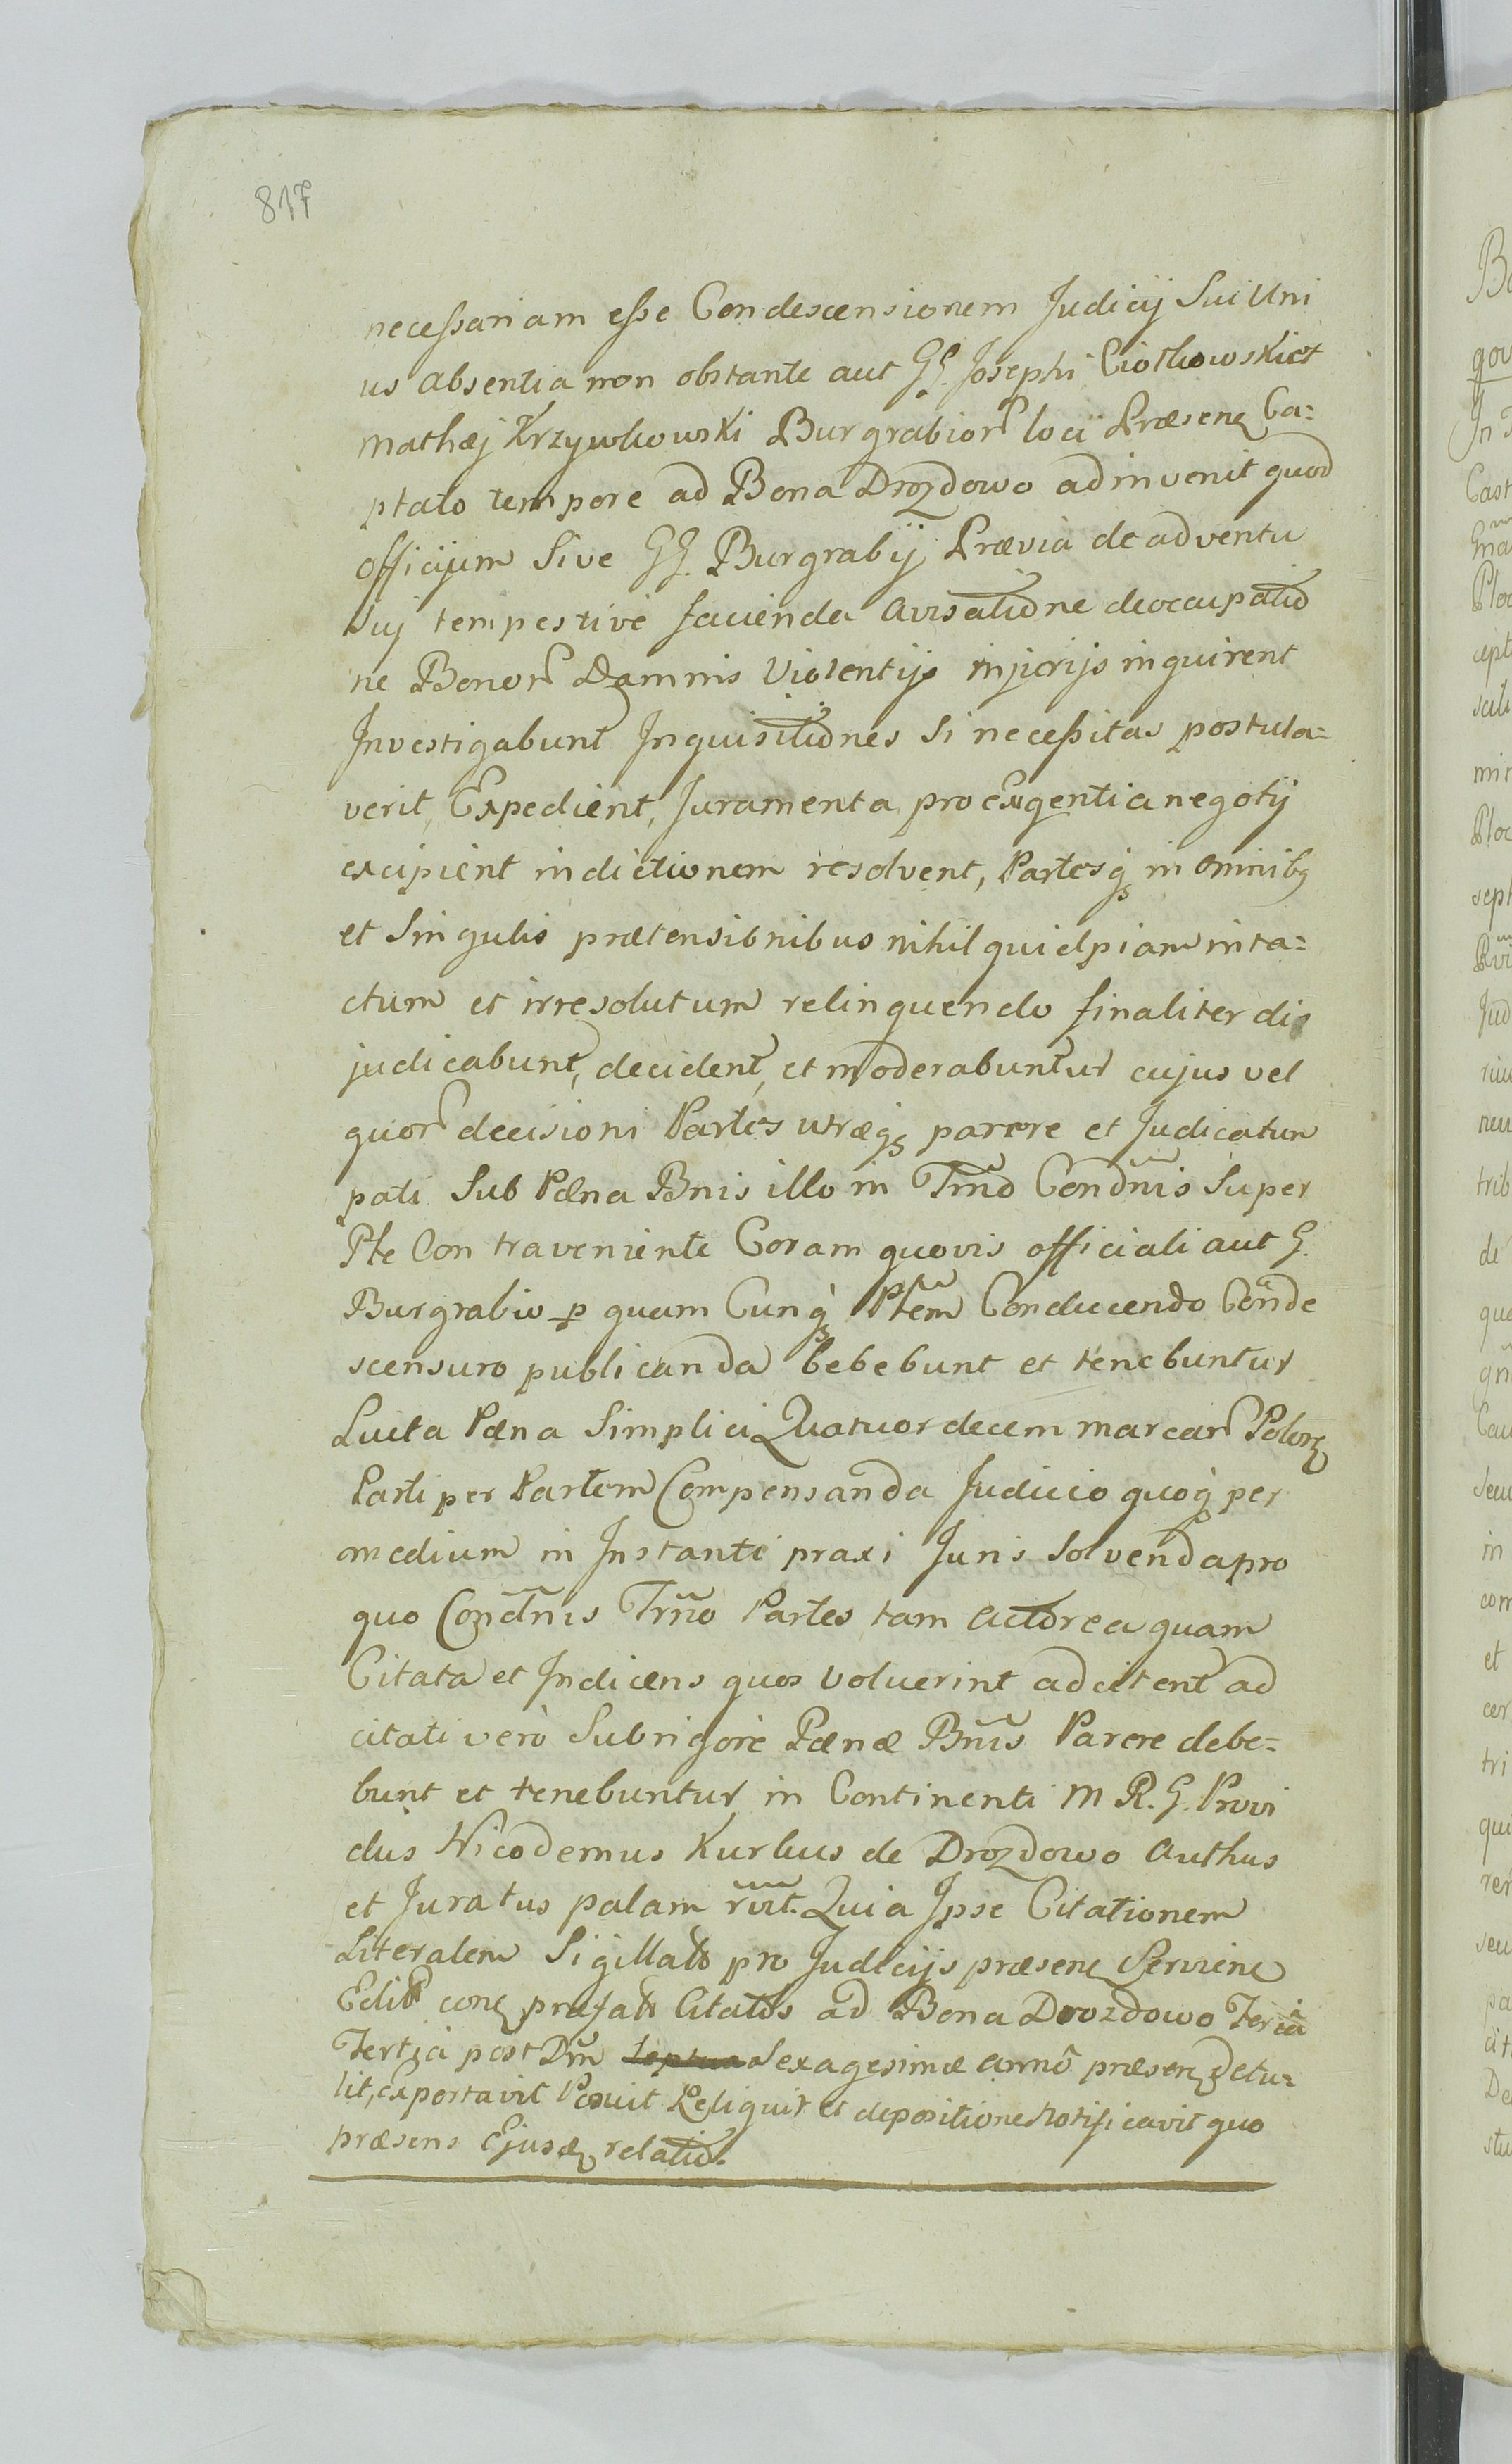 817
necessariam esse Condescensionem Judicij Sui Uni
us absentia non obstante aut GG. Josephi Ciołkowski et
Mathæj Krzywkowski Burgrabior loci Præsen Ca=
ptato tempore ad Bona Drozdowo adinvenit quod
officijum Sive GG. Burgrabij Prævià de adventu
Suj tempestivè facienda avisatione de occupatio
ne Bonor Damnis Violentijs injurijs inquirent
Investigabunt Inquisitiones Si necessitas postula=
verit, Expedient, Juramenta pro exigentia negotij
excipient indictionem resolvent, Partesq in omnibq
et Singulis prætensionibus nihil quidpiam inta=
ctum et irresolutum relinquendo finaliter dis
judicabunt, decident, et moderabuntur cujus vel
quor decisioni Partes utræq parere et Judicatum
pati Sub Pæna Bnis illo in Trnō Condnis Super
Pte Contraveniente Coram quovis officiali aut G.
Burgrabio p quam Cunq Ptem Conducendo Conde
scensuro publicanda bebebunt et tenebuntur
Luita Pæna Simplici Quatuordecem marcar Polon
Parti per Partem Compensanda Judicio quoq per
medium in Instanti praxi Juris Solvenda pro
quo Condnis Trno Partes tam actorea quam
Citata et Indicens quos voluerint adcitent ad
citati verò Sub rigore Pænæ Bnis Parere debe=
bunt et tenebuntur in Continenti M R. G. Provi
dus Nicodemus Kurkus de Drozdowo Authus
et Juratus palam rvit. Quia Ipse Citationem
Literalem Sigillato pro Judicijs præsen Servien
Edit con præfato Citatos ad Bona Drozdowo Feria
Tertia post Dm Septua Sexagesimæ anno præsen Detu=
lit, exportavit Posuit Reliquit et depositione Notificavit quo
præsens Ejusd relatio.
Ba
qov
In
Cast
Plo
cept
min
Ploc
sept
Jud
trib
de
que
Cau
Seu
in
com
et
cer
tri
qui
ren
seu
pa
De